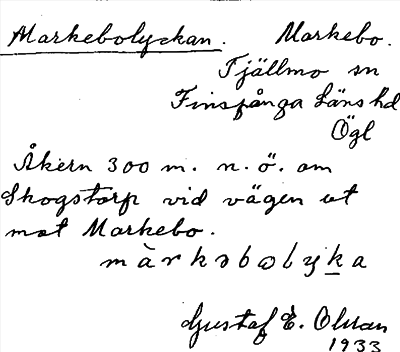 Markebolyckan. Markebo.
Tjällmo sn
Finspånga Läns hd
Ögl
Åkern 300 m. n. ö. om
Skogstorp vid vägen ut
mot Markebo.
màrkəbωlyka
Gustaf E. Olsson
1933